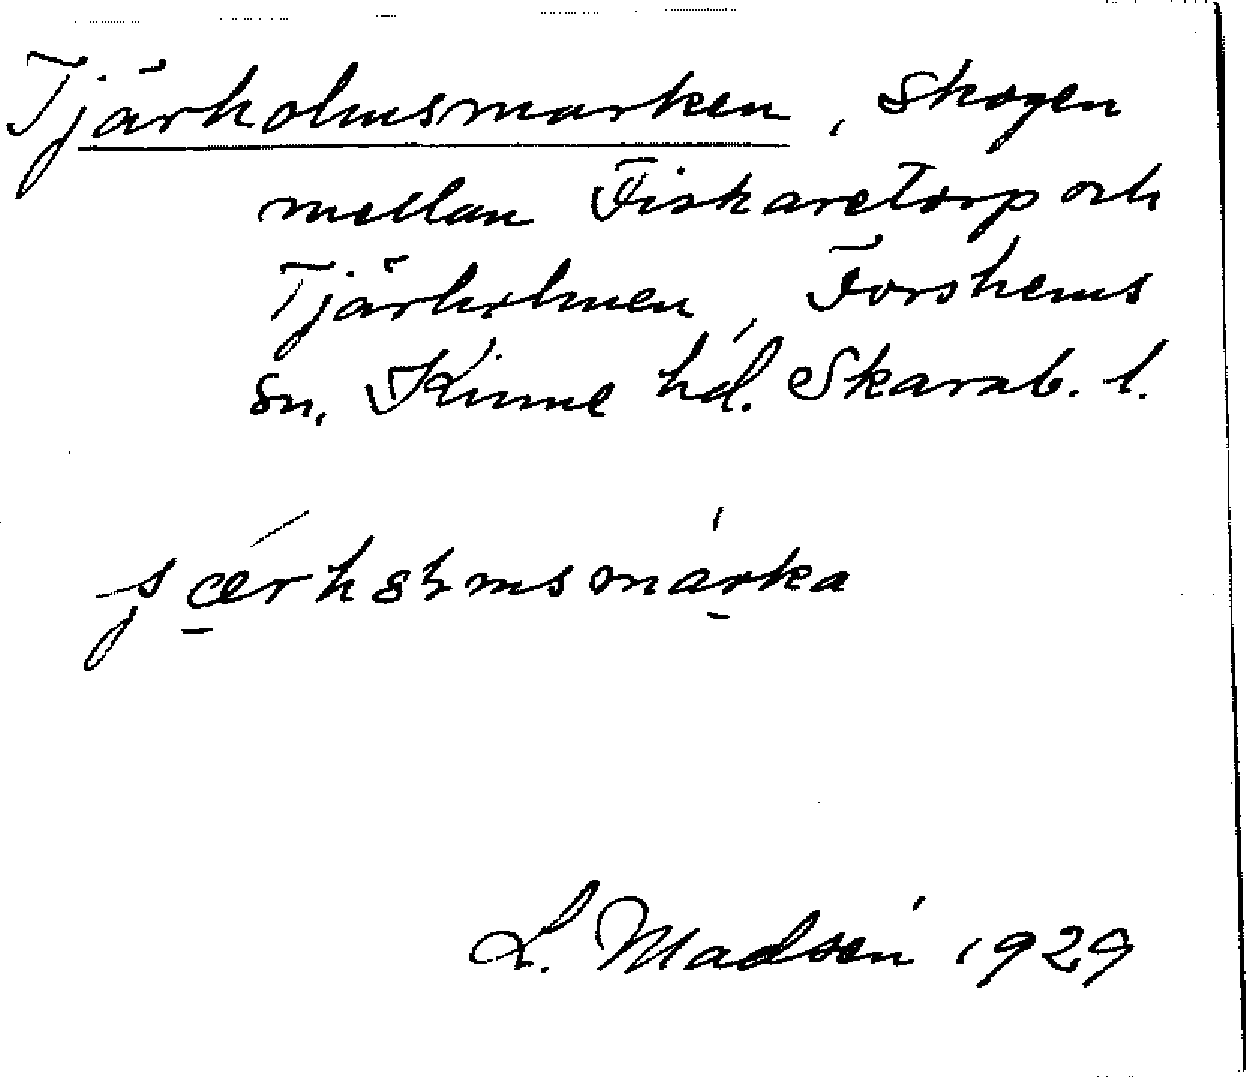 Tjärholmsmarken, skogen
mellan Fiskaretorp och
Tjärholmen, Forshems
sn, Kinne hd. Skarab. l.
L. Madsén 1929